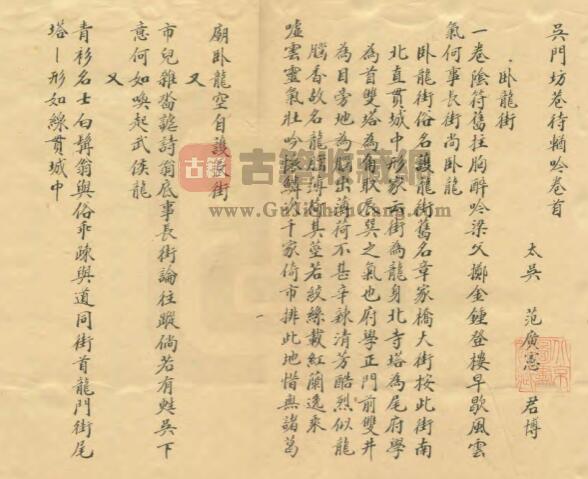 吳門坊巷待輶吟卷首
太吳 范廣憲 君博
臥龍街
一卷陰符舊拄胸醉吟梁父擲金鍾登樓早歇風雲
氣何事長街尚臥龍
臥龍街俗名護龍街舊名章家橋大街按此街南
北直貫城中形家云街為龍身北寺塔為尾府學
為首雙塔為角取辰巽之氣也府學正門前雙井
為目旁地為腦出薄荷不甚辛辣清芳酷烈似龍
腦香故名龍腦薄荷其莖若紋絲載紅蘭逸乘
噓雲靈氣壯吟 鱗次千家倚市排此地惜無諸葛
廟臥龍空自護 街
又
市兒雜遝 詩翁底事長街論往蹤倘若有蛙吳下
意何如喚起武侯龍
又
青衫名士白鬅翁與俗乖疎與道同街首龍門街尾
塔一形如線貫城中
古籍收藏網
www.GuJiShouCang.com
古籍